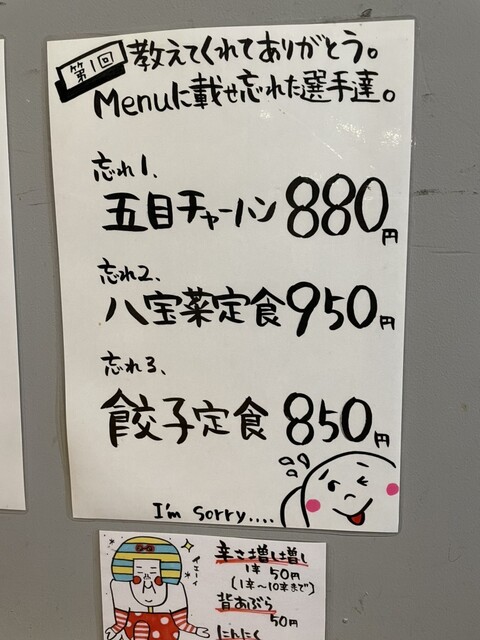 第1回
教えてくれてありがとう。
Menuに載せ忘れた選手達。
忘れ1、
五目チャーハン 880円
忘れ2、
八宝菜定食 950円
忘れ3、
餃子定食 850円
I'm sorry....
イェーイ
辛さ増し増し
1辛 50円
(1辛〜10辛まで)
背あぶら
50円
にんにく